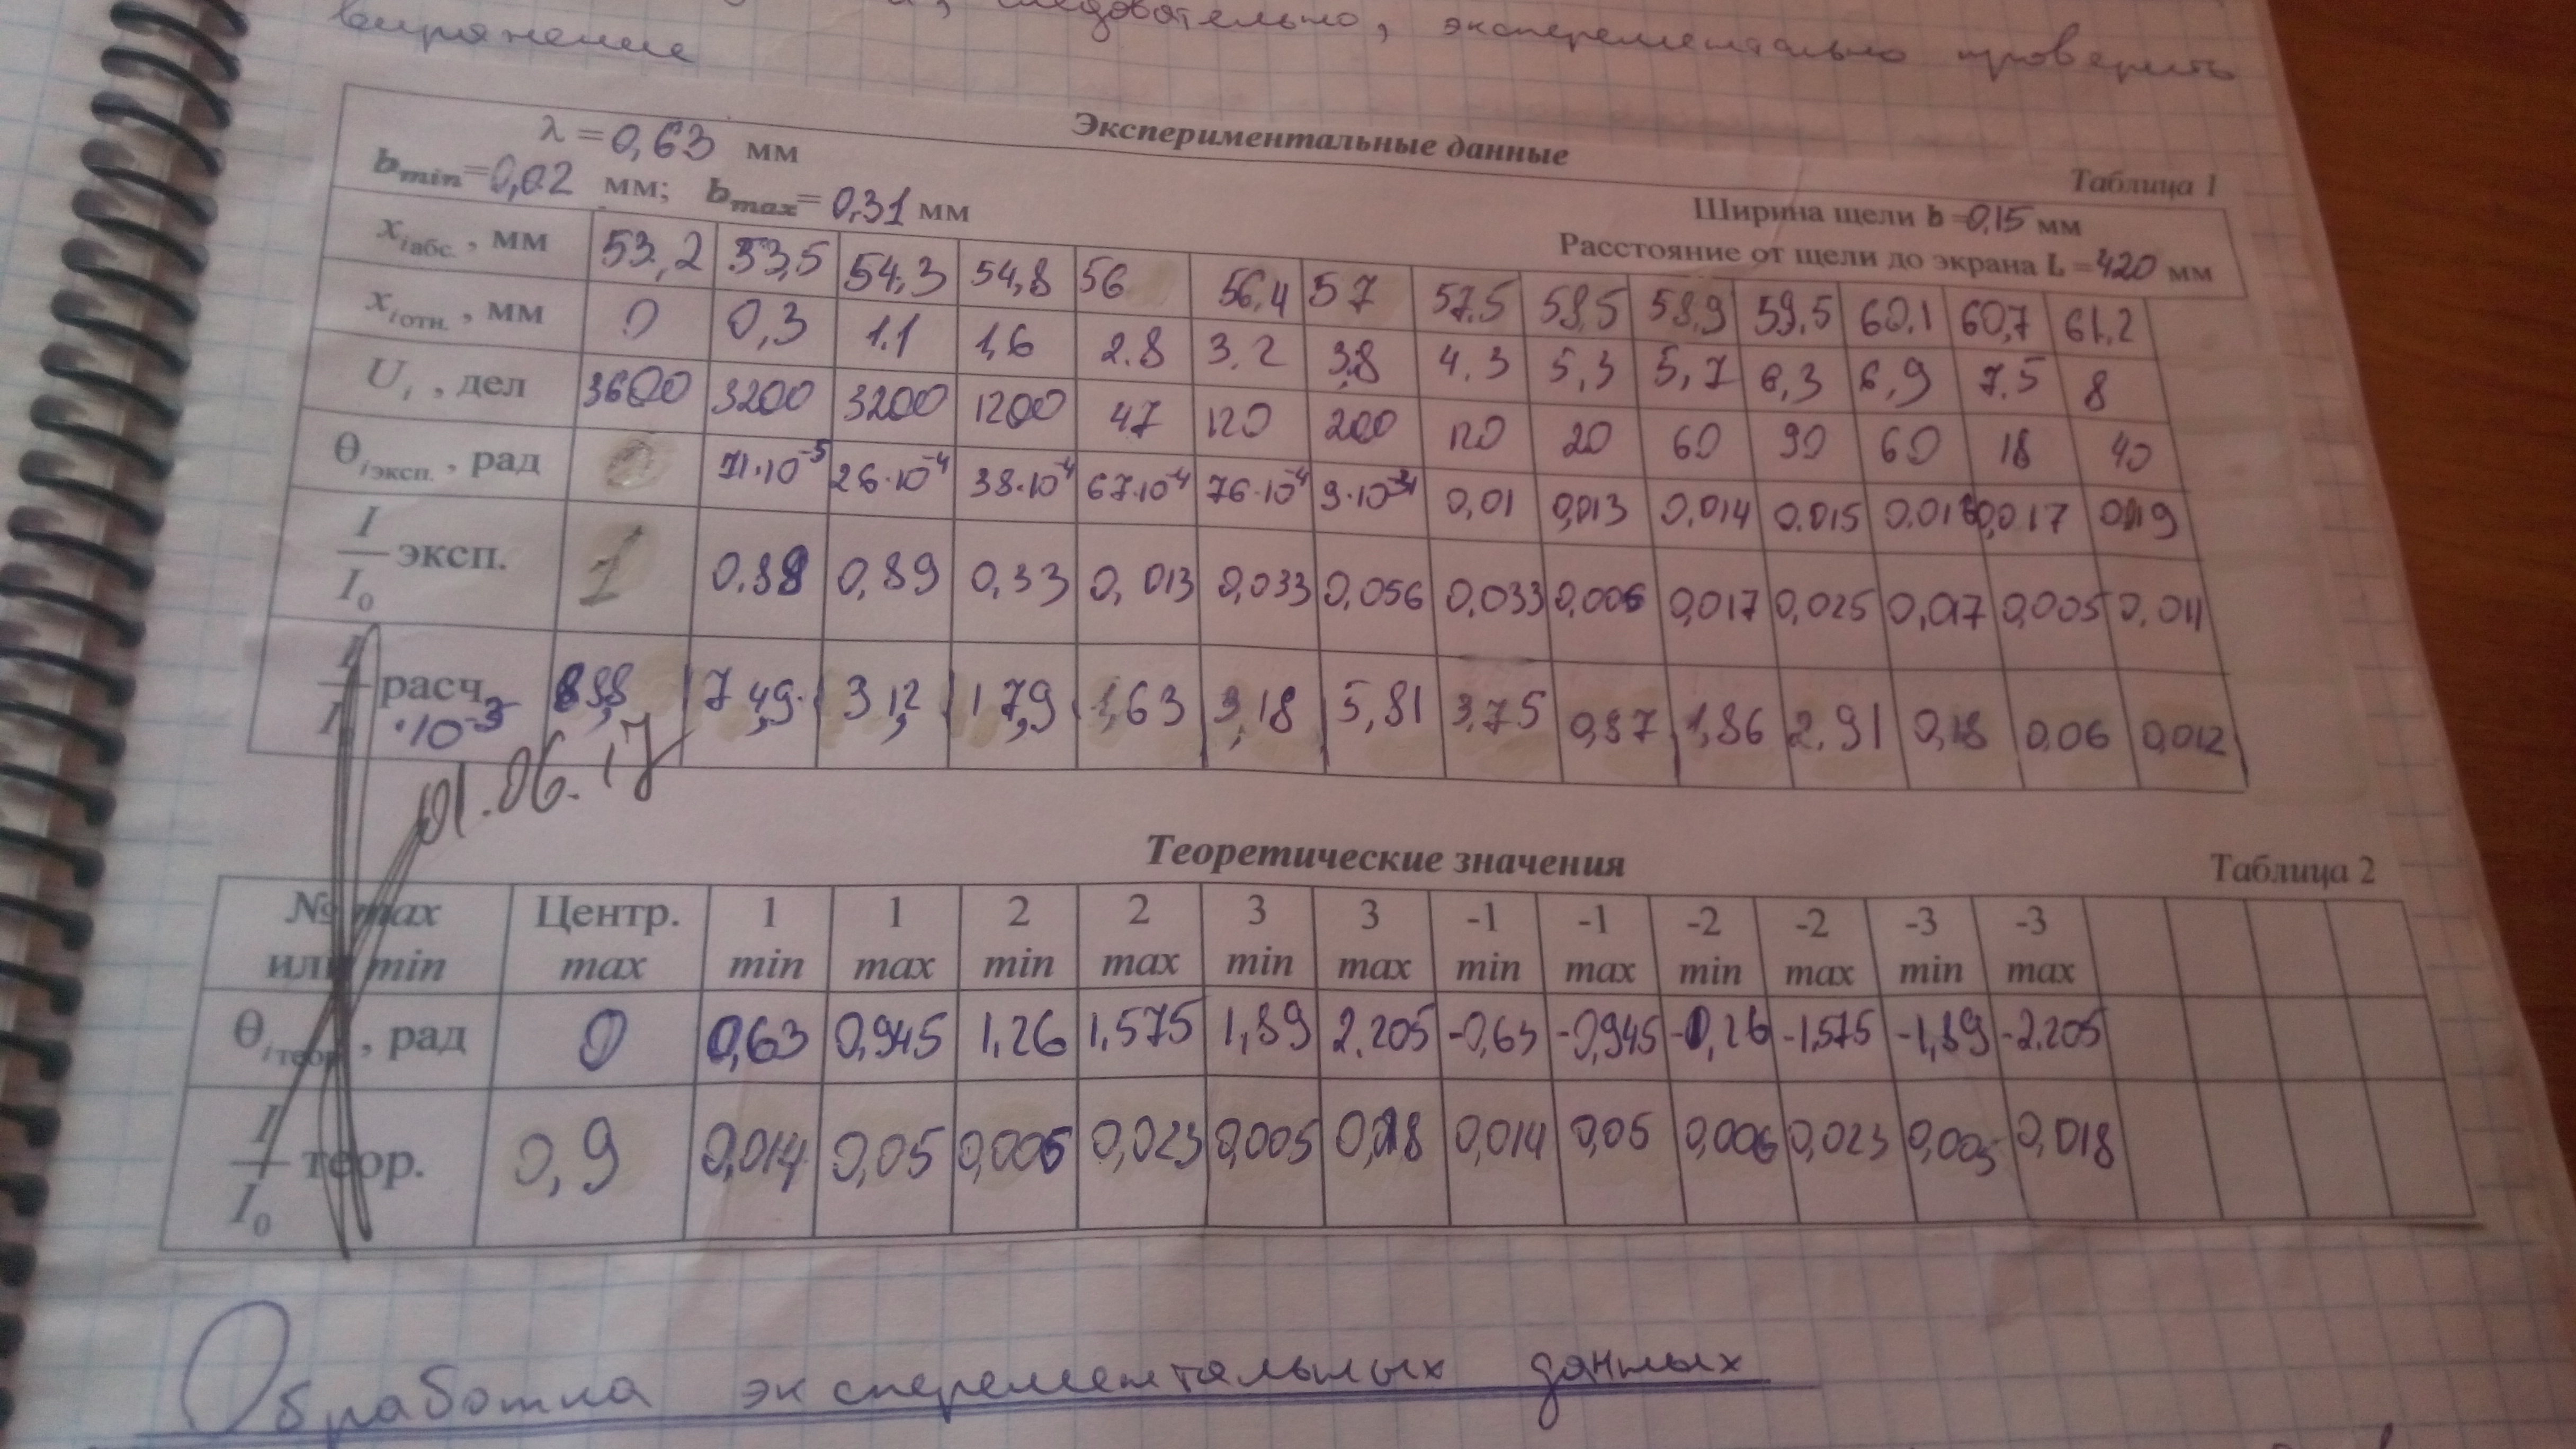 , следовательно, эксперементально проверить
выражение
Экспериментальные данные
Таблица 1
λ = 0,63 мм
b min = 0,02 мм; b max = 0,31 мм
Ширина щели b = 0,15 мм
Расстояние от щели до экрана L = 420 мм
x i абс. , мм 53,2 53,5 54,3 54,8 56 56,4 57 57,5 58,5 58,9 59,5 60,1 60,7 61,2
x i отн. , мм 0 0,3 1.1 1,6 2.8 3.2 3,8 4.3 5,3 5,7 6,3 6,9 7.5 8
U i , дел 3600 3200 3200 1200 47 120 200 120 20 60 90 60 18 40
θ i эксп. , рад 0 71·10⁻⁵ 26·10⁻⁴ 38·10⁻⁴ 67·10⁻⁴ 76·10⁻⁴ 9·10⁻³ 0,01 0,013 0,014 0.015 0.016 0,017 0,019
I/I₀ эксп. 1 0.88 0,89 0,33 0,013 0,033 0,056 0,033 0,006 0,017 0,025 0,017 0,005 0,011
I/I расч. ·10⁻³ 74,9 31,2 17,9 1,63 3,18 5,81 3,75 0,87 1,86 2,91 0,18 0.06 0,012
01.06.17
Теоретические значения
Таблица 2
№ max или min Центр. max 1 min 1 max 2 min 2 max 3 min 3 max -1 min -1 max -2 min -2 max -3 min -3 max
θ i теор. , рад 0 0,63 0,945 1,26 1,575 1,89 2.205 -0,63 -0,945 -1,26 -1,575 -1,89 -2.205
I/I₀ теор. 0,9 0,014 0,05 0,006 0,023 0,005 0,018 0,014 0,05 0,006 0,023 0,005 0,018
Обработка эксперементальных данных